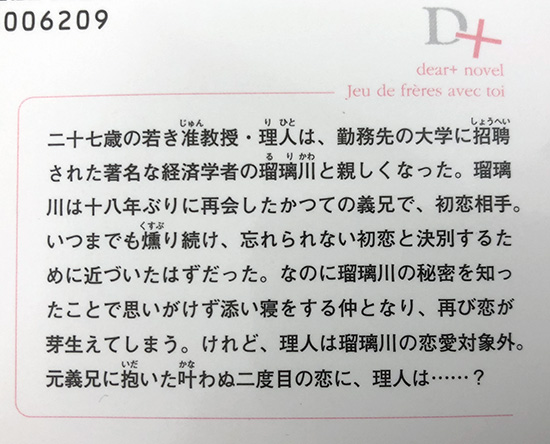 006209
D+
dear+ novel
Jeu de frères avec toi
二十七歳の若き准教授・理人は、勤務先の大学に招聘
された著名な経済学者の瑠璃川と親しくなった。瑠璃
川は十八年ぶりに再会したかつての義兄で、初恋相手。
いつまでも燻り続け、忘れられない初恋と決別するた
めに近づいたはずだった。なのに瑠璃川の秘密を知っ
たことで思いがけず添い寝をする仲となり、再び恋が
芽生えてしまう。けれど、理人は瑠璃川の恋愛対象外。
元義兄に抱いた叶わぬ二度目の恋に、理人は……？